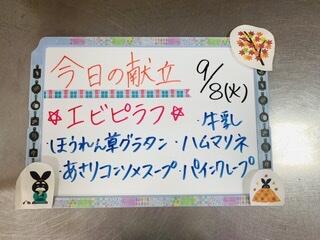 今日の献立
9/8(火)
☆エビピラフ☆
・牛乳
・ほうれん草グラタン・ハムマリネ
・あさりコンソメスープ・パインクレープ